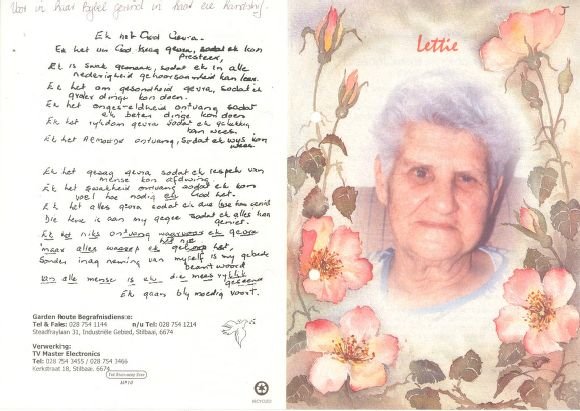 Voor in haar Bybel gevind in haar eie handskrif.
Lettie
Ek het God Gevra.
Ek het vir God Krag gevra, sodat ek kan
Presteer,
Ek is swak gemaak, sodat ek in alle
nederigheid gehoorsaamheid kan leer.
Ek het om gesondheid gevra, sodat ek
groter dinge kan doen.
Ek het ongesteldheid ontvang sodat
ek beter dinge kan doen
Ek het rykdom gevra sodat ek gelukkig
kan wees.
Ek het Armoede ontvang, sodat ek wys kan
wees.
Ek het gesag gevra sodat ek respek van
mense kan afdwing.
Ek het swakheid ontvang sodat ek kan
voel hoe nodig ek God het.
Ek het alles gevra sodat ek die lewe kan geniet
Die lewe is aan my gegee sodat ek alles kan
geniet.
Ek het niks ontvang waarvoor ek gevra
het nie
maar alles waarop ek gehoop het,
Sonder inag neming van myself is my gebede
beantwoord
Van alle mense is ek die mees ryklik
geseënde
Ek gaan bly moedig voort.
Garden Route Begrafnisdienste:
Tel & Faks: 028 754 1144 n/u Tel: 028 754 1214
Steadfraylaan 31, Industriële Gebied, Stilbaai, 6674
Verwerking:
TV Master Electronics
Tel: 028 754 3455 / 028 754 3466
Kerkstraat 18, Stilbaai, 6674
RECYCLED